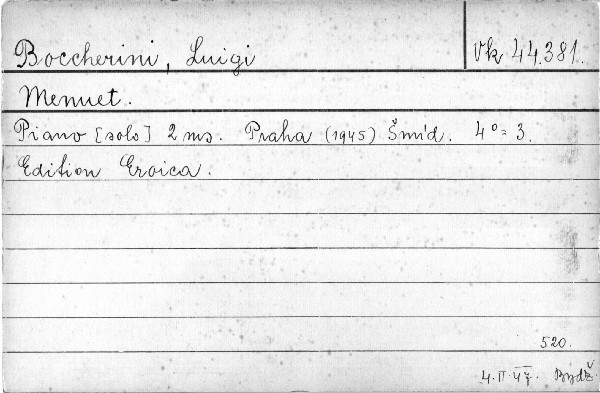 Boccherini, Luigi
Vk 44.381.
Menuet.
Piano [solo] 2 ms. Praha (1945) Šmíd. 4° = 3.
Edition Eroica.
520.
4. II. 47. Bydž.